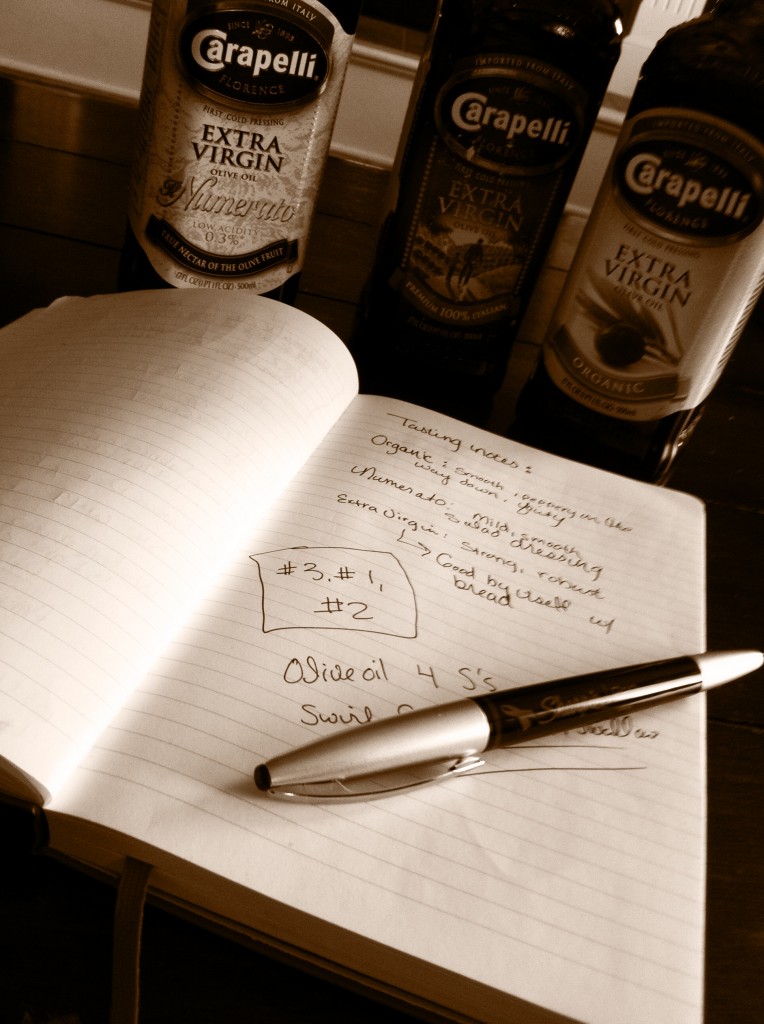 FROM ITALY
SINCE 1893
Carapelli
FLORENCE
FIRST COLD PRESSING
EXTRA
VIRGIN
OLIVE OIL
Numerato
LOW ACIDITY
0.3%*
TRUE NECTAR OF THE OLIVE FRUIT
IMPORTED FROM ITALY
Carapelli
FLORENCE
EXTRA
VIRGIN
OLIVE OIL
PREMIUM 100% ITALIAN
IMPORTED FROM ITALY
Carapelli
FLORENCE
FIRST COLD PRESSING
EXTRA
VIRGIN
OLIVE OIL
ORGANIC
Tasting notes:
Organic: smooth, peppery on the
way down,
Numerato: mild, smooth
salad dressing
Extra Virgin: strong, robust
Good by itself w/
bread
#3, #1,
#2
Olive oil 4 S's
Swirl